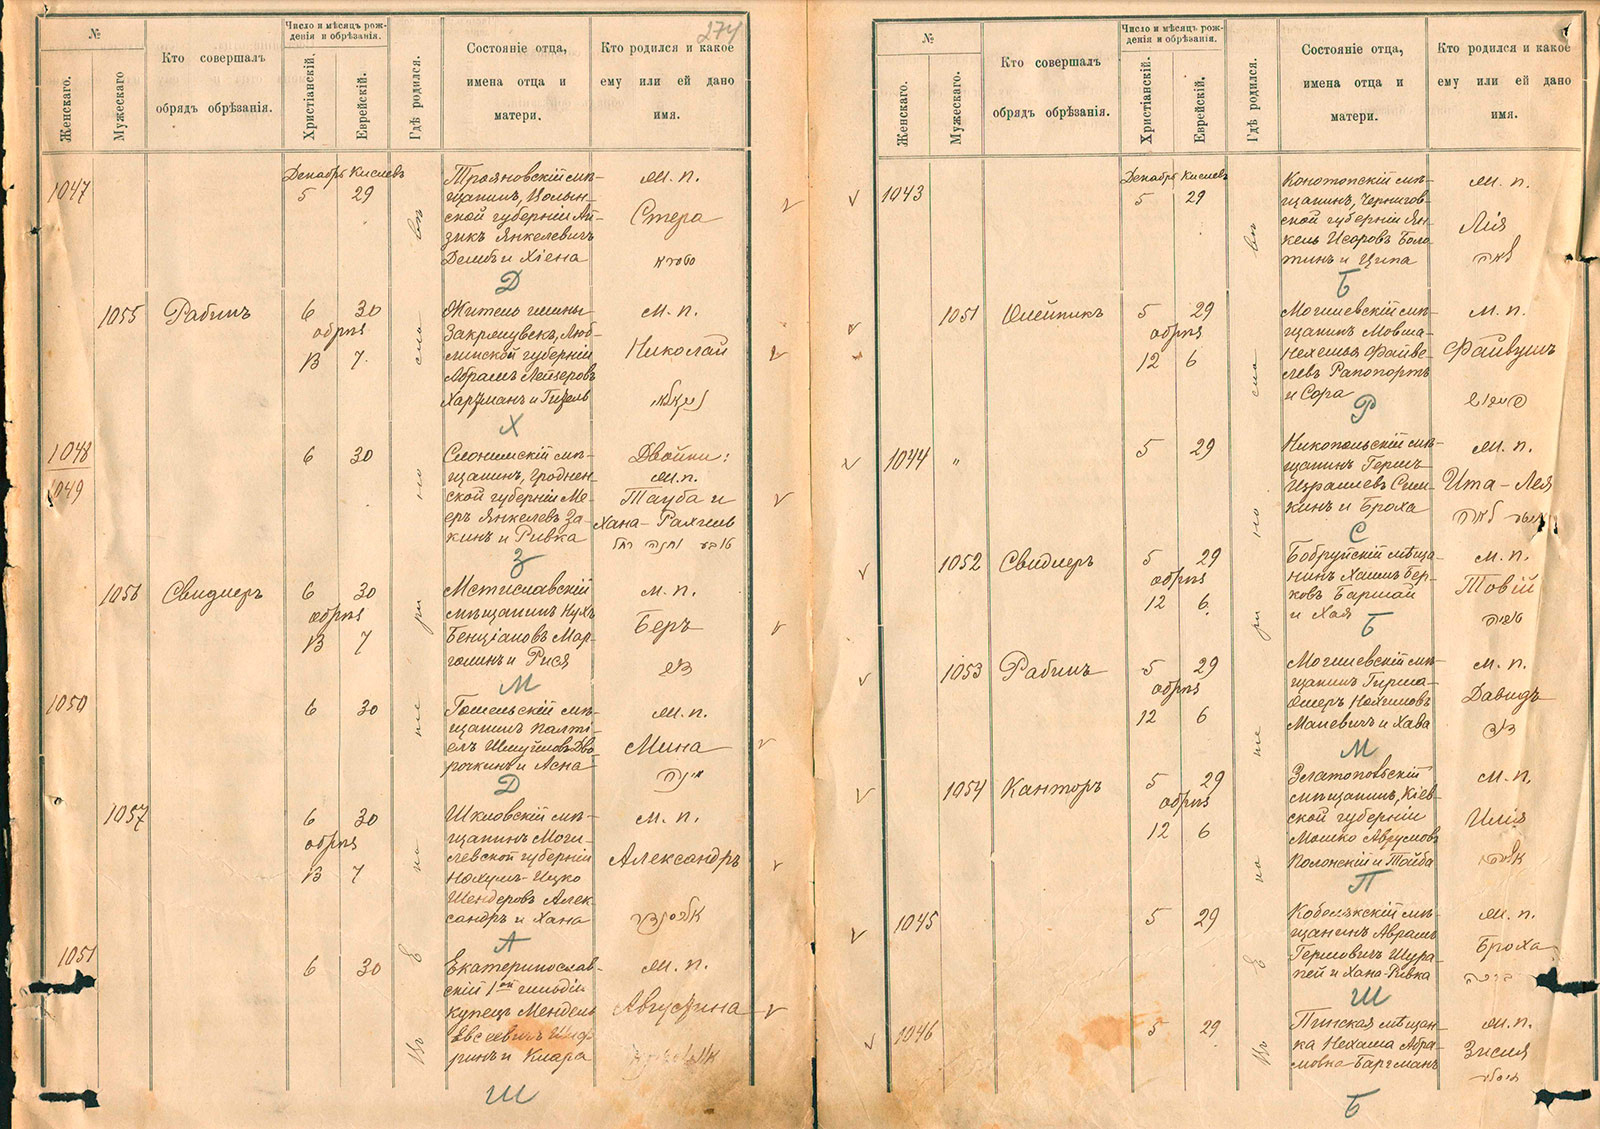 274
№
Женскаго.
Мужескаго
Кто совершалъ
обрядъ обрѣзанія.
Число и мѣсяцъ рож-
денія и обрѣзанія.
Христіанскій.
Еврейскій.
Гдѣ родился.
Состояніе отца,
имена отца и
матери.
Кто родился и какое
ему или ей дано
имя.
Въ Екатеринославѣ
1047
Декабрь Кислевъ
5 29
Трояновскій мѣ-
щанинъ, Волын-
ской губерніи Ай-
зикъ Янкелевичъ
и Хіена
ж. п.
Стера
סטערא
Д
1055
Рабинъ
6 30
обрѣз
13 7
Житель гмины
Люб-
линской губерніи
Абрамъ Лейзеровъ
Харцманъ и Гизель
м. п.
Николай
Х
1048
1049
6 30
Слонимскій мѣ-
щанинъ, Гроднен-
ской губерніи Ме-
еръ Янкелевъ За-
кинъ и Ривка
Двойни:
ж. п.
Тауба и
Хана-Рахиль
טובע וחנה רחל
З
1056
Свидлеръ
6 30
обрѣз
13 7
Мстиславскій
мѣщанинъ
Бенціановъ Мар-
голинъ и Рися
м. п.
Беръ
בער
М
1050
6 30
Гомельскій мѣ-
щанинъ Палті-
елъ Шмуйловъ Дво-
рочкинъ и Асна
ж. п.
Мина
מינה
Д
1057
6 30
обрѣз
13 7
Шкловскій мѣ-
щанинъ Моги-
левской губерніи
Нохумъ-Ицко
Шендеровъ Алек-
сандръ и Хана
м. п.
Александръ
אלכסנדר
А
1051
6 30
Екатеринослав-
скій 1ой гильдіи
купецъ Мендель
Евсеевичъ Шиф-
ринъ и Клара
ж. п.
Августина
Ш
№
Женскаго.
Мужескаго.
Кто совершалъ
обрядъ обрѣзанія.
Число и мѣсяцъ рож-
денія и обрѣзанія.
Христіанскій.
Еврейскій.
Гдѣ родился.
Состояніе отца,
имена отца и
матери.
Кто родился и какое
ему или ей дано
имя.
Въ Екатеринославѣ
1043
Декабрь Кислевъ
5 29
Конотопскій мѣ-
щанинъ, Чернигов-
ской губерніи Ян-
кель Исоровъ Боло-
тинъ и Ципа
ж. п.
Лія
לאה
Б
1051
Олейникъ
5 29
обрѣз
12 6
Могилевскій мѣ-
щанинъ Мовша-
Нехемья Файве-
левъ Рапопортъ
и Сора
м. п.
Файвушъ
פייווש
Р
1044 "
5 29
Никопольскій мѣ-
щанинъ Гершъ
Израилевъ Сим-
кинъ и Броха
ж. п.
Ита-Лея
איטע לאה
С
1052
Свидлеръ
5 29
обрѣз
12 6
Бобруйскій мѣща-
нинъ Хаимъ Бер-
ковъ Баршай
и Хая
м. п.
Товій
טוביה
Б
1053
Рабинъ
5 29
обрѣз
12 6
Могилевскій мѣ-
щанинъ Гирша-
Ошеръ Нохимовъ
Маневичъ и Хава
м. п.
Давидъ
דוד
М
1054
Канторъ
5 29
обрѣз
12 6
Златопольскій
мѣщанинъ, Кіев-
ской губерніи
Мошко Аврумовъ
Полонскій и Тойба
м. п.
Илія
אליהו
П
1045
5 29
Кобелякскій мѣ-
щанинъ Аврамъ
Гершовичъ Шура-
пей и Хана-Ривка
ж. п.
Броха
ברכה
Ш
1046
5 29
Пинская мѣщан-
ка Нехама Абра-
мовна Баргманъ
ж. п.
Зисля
זיסלא
Б